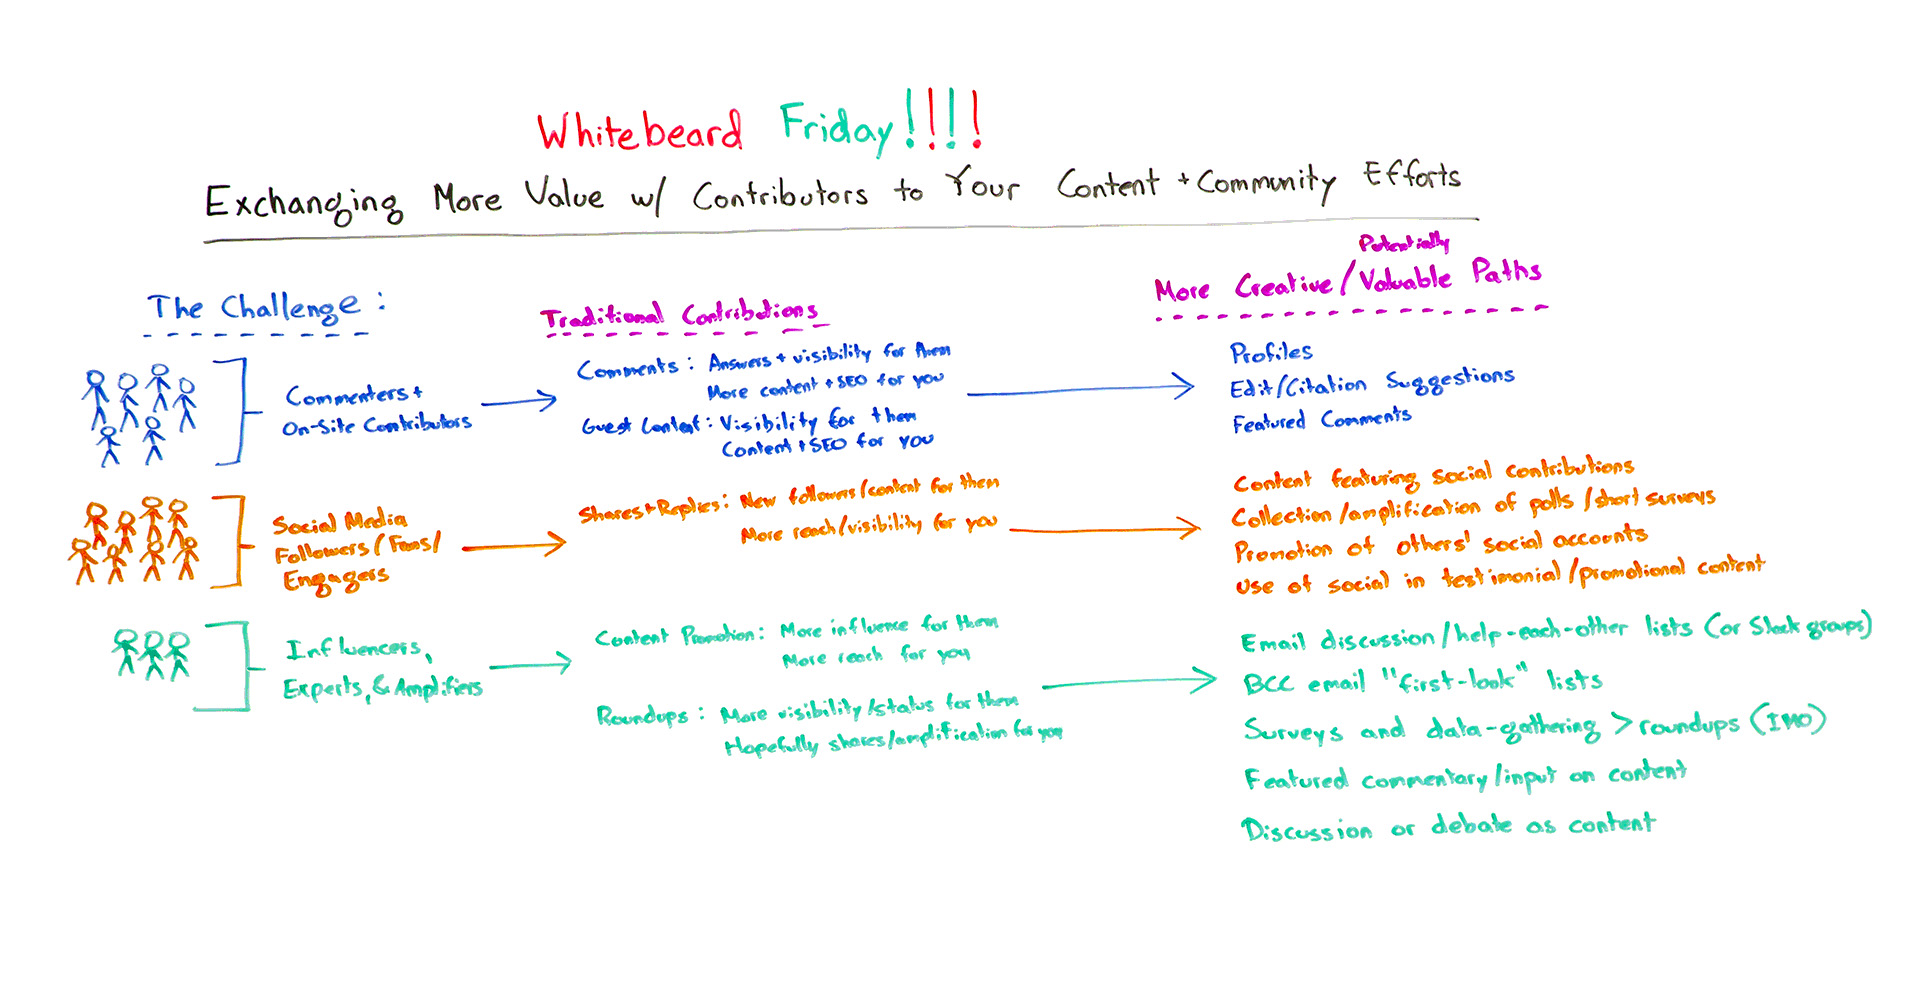 Whitebeard Friday!!!!
Exchanging More Value w/ Contributors to Your Content + Community Efforts
The Challenge:
Traditional Contributions
Potentially
More Creative/Valuable Paths
Commenters +
On-Site Contributors
Comments: Answers + visibility for them
More content + SEO for you
Guest Content: Visibility for them
Content + SEO for you
Profiles
Edit/Citation Suggestions
Featured Comments
Social Media
Followers/Fans/
Engagers
Shares + Replies: New followers/content for them
More reach/visibility for you
Content featuring social contributions
Collection/amplification of polls/short surveys
Promotion of others' social accounts
Use of social in testimonial/promotional content
Influencers,
Experts, & Amplifiers
Content Promotion: More influence for them
More reach for you
Roundups: More visibility/status for them
Hopefully shares/amplification for you
Email discussion/help-each-other lists (or Slack groups)
BCC email "first-look" lists
Surveys and data-gathering > roundups (IMO)
Featured commentary/input on content
Discussion or debate as content